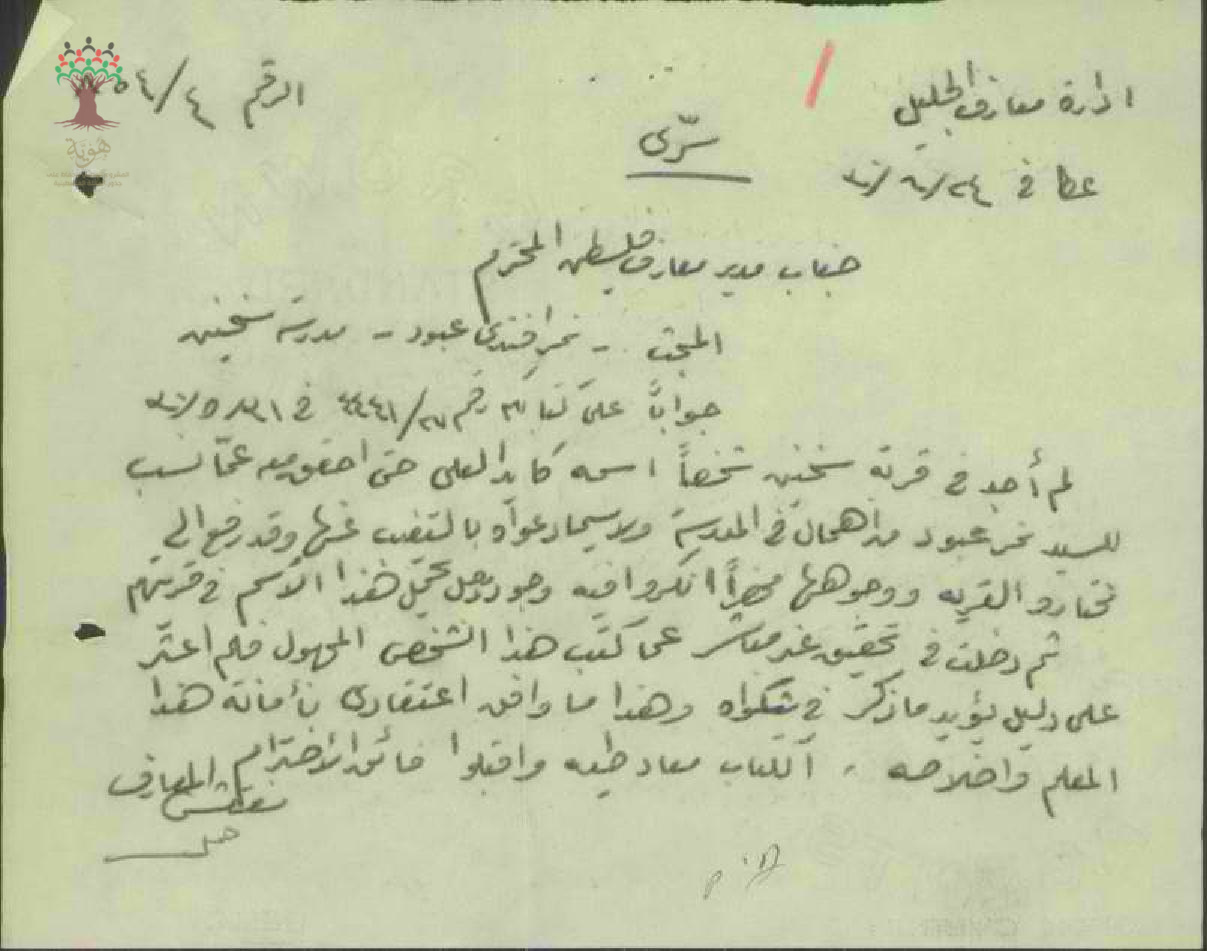 ادارة معارف الجليل
الرقم ٤/٥٤
سرّى
عكا في
جناب مدير معارف فلسطين المحترم
المبحث - نمر افندى عبود - مدرسة سخنين
جواباً على كتابكم رقم في
لم أجد في قرية سخنين شخصاً اسمه كايد العلي حتى احقق معه عمّا نسب
للسيد نمر عبود من اهمال في المدرسة ولاسيما دعواه بالتغيب عنها وقد رفع الي
مختارو القريه ووجوهها انكروا فيه وجود رجل يحمل هذا الاسم في قريتهم
ثم دخلت في تحقيق غير مباشر عما كتب هذا الشخص المجهول فلم اعثر
على دليل يؤيد ما ذكر في شكواه وهذا ما وافق اعتقادى بأمانة هذا
المعلم واخلاصه . الكتاب معاد طيه واقبلوا فائق الاحترام
مفتش المعارف
هوية